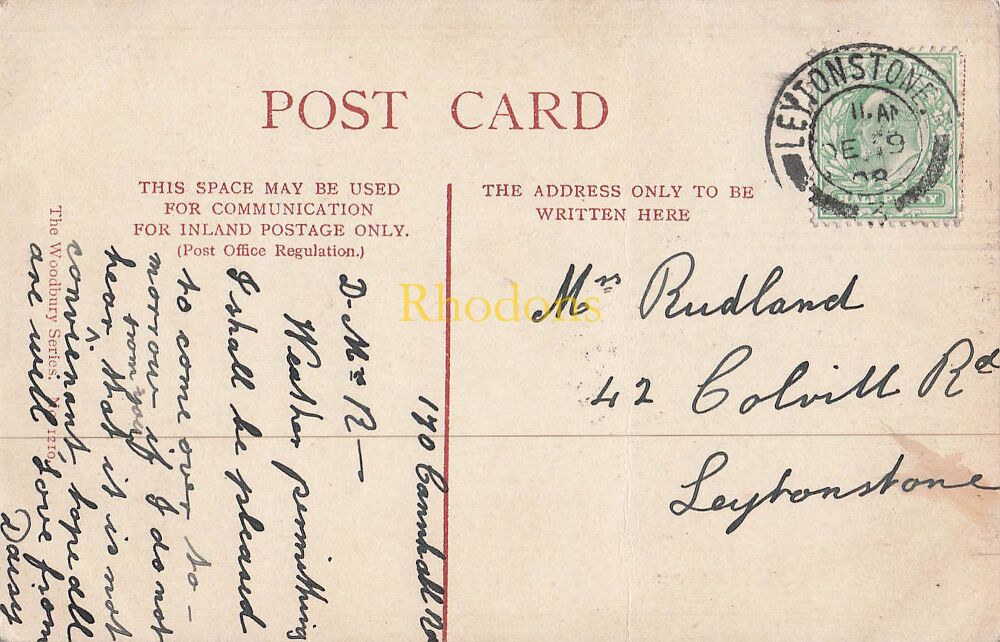 POST CARD
THIS SPACE MAY BE USED
FOR COMMUNICATION
FOR INLAND POSTAGE ONLY.
(Post Office Regulation.)
THE ADDRESS ONLY TO BE
WRITTEN HERE
LEYTONSTONE
DE 9
08
HALFPENNY
Mrs Rudland
42 Colvill Rd
Leytonstone
190 Cannhall Rd
D- Mrs R—
Weather permitting
I shall be pleased
to come over to-
morrow if I do not
from you
hear ^ that it is not
convienant, hope all
are well, Love from
Daisy
The Woodbury Series, No. 1210.
Rhodons